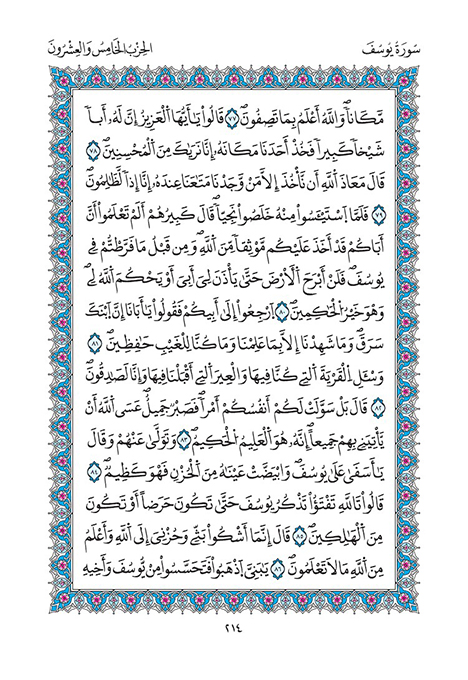 سُورَةُ يُوسُفَ
الحِزْبُ الخَامِسُ وَالعِشْرُونَ
مَّكَاناًۖ وَاللَّهُ أَعْلَمُ بِمَا تَصِفُونَۖ ٧٧ قَالُواْ يَٰأَيُّهَا اَ۬لْعَزِيزُ إِنَّ لَهُۥ أَباٗ
شَيْخاٗ كَبِيراٗ فَخُذَ اَحَدَنَا مَكَانَهُۥٓ إِنَّا نَر۪يٰكَ مِنَ اَ۬لْمُحْسِنِينَۖ ٧٨
قَالَ مَعَاذَ اَ۬للَّهِ أَن نَّأْخُذَ إِلَّا مَنْ وَّجَدْنَا مَتَٰعَنَا عِندَهُۥٓ إِنَّآ إِذاٗ لَّظَٰلِمُونَۖ
٧٩ فَلَمَّا اَ۪سْتَيْـَٔسُواْ مِنْهُ خَلَصُواْ نَجِيّاٗۖ قَالَ كَبِيرُهُمُۥٓ أَلَمْ تَعْلَمُوٓاْ أَنَّ
أَبَاكُمْ قَدَ اَخَذَ عَلَيْكُم مَّوْثِقاٗ مِّنَ اَ۬للَّهِۖ وَمِن قَبْلُ مَا فَرَّطتُّمْ فِے
يُوسُفَۖ فَلَنَ اَبْرَحَ اَ۬لَارْضَ حَتَّىٰ يَأْذَنَ لِيَ أَبِيَ أَوْ يَحْكُمَ اَ۬للَّهُ لِےۖ
وَهُوَ خَيْرُ اُ۬لْحَٰكِمِينَۖ ٨٠ اَ۪رْجِعُوٓاْ إِلَىٰٓ أَبِيكُمْ فَقُولُواْ يَٰٓأَبَانَآ إِنَّ اَ۪بْنَكَ
سَرَقَۖ وَمَا شَهِدْنَآ إِلَّا بِمَا عَلِمْنَا وَمَا كُنَّا لِلْغَيْبِ حَٰفِظِينَۖ ٨١
وَسْـَٔلِ اِ۬لْقَرْيَةَ اَ۬لتِے كُنَّا فِيهَا وَالْعِيرَ اَ۬لتِےٓ أَقْبَلْنَا فِيهَا وَإِنَّا لَصَٰدِقُونَۖ
٨٢ قَالَ بَلْ سَوَّلَتْ لَكُمُۥٓ أَنفُسُكُمُۥٓ أَمْراٗۖ فَصَبْرٞ جَمِيلٌۖ عَسَى اَ۬للَّهُ أَنْ
يَّأْتِيَنِے بِهِمْ جَمِيعاًۖ اِنَّهُۥ هُوَ اَ۬لْعَلِيمُ اُ۬لْحَكِيمُۖ ٨٣ وَتَوَلَّىٰ عَنْهُمْ وَقَالَ
يَٰٓأَسَفَىٰ عَلَىٰ يُوسُفَۖ وَابْيَضَّتْ عَيْنَٰهُ مِنَ اَ۬لْحُزْنِ فَهُوَ كَظِيمٞۖ ٨٤
قَالُواْ تَاللَّهِ تَفْتَؤُاْ تَذْكُرُ يُوسُفَ حَتَّىٰ تَكُونَ حَرَضاً أَوْ تَكُونَ
مِنَ اَ۬لْهَٰلِكِينَۖ ٨٥ قَالَ إِنَّمَآ أَشْكُواْ بَثِّے وَحُزْنِيَ إِلَى اَ۬للَّهِ وَأَعْلَمُ
مِنَ اَ۬للَّهِ مَا لَا تَعْلَمُونَۖ ٨٦ يَٰبَنِيَّ اَ۪ذْهَبُواْ فَتَحَسَّسُواْ مِنْ يُّوسُفَ وَأَخِيهِ
٢١٤